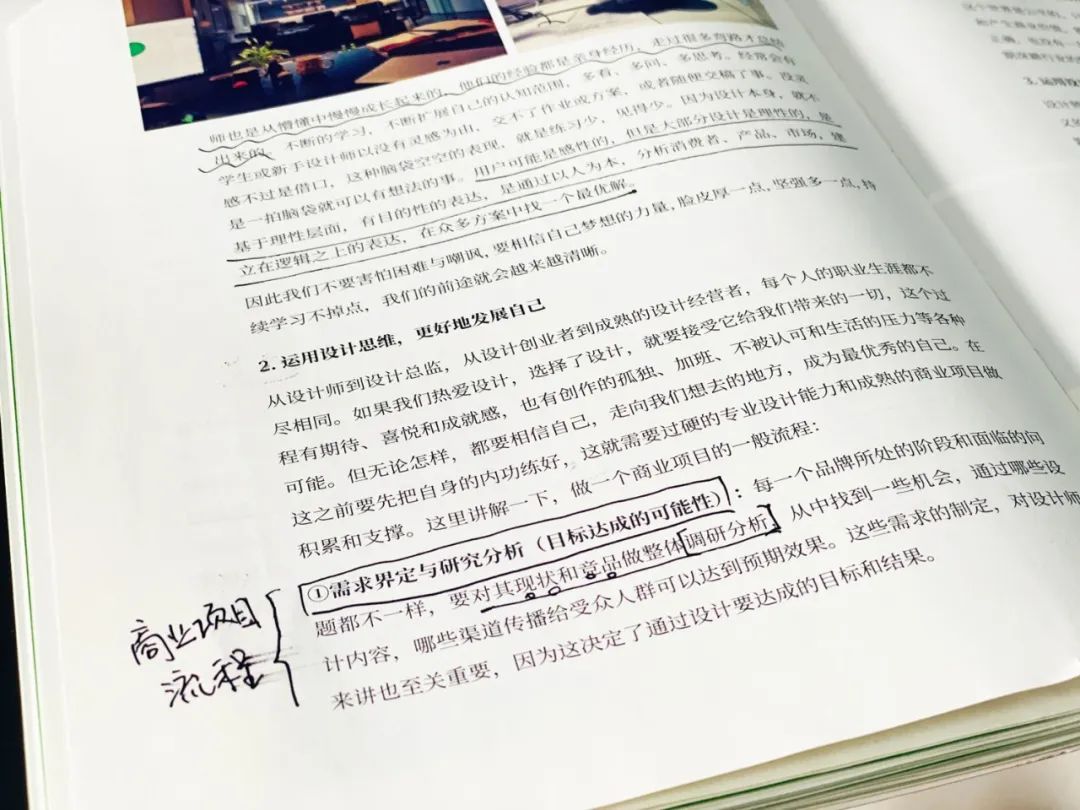 师也是从懵懂中慢慢成长起来的,他们的经验都是亲身经历,走过很多弯路才总结
出来的。不断的学习,不断扩展自己的认知范围,多看、多问、多思考。经常会有
学生或新手设计师以没有灵感为由,交不了作业或方案,或者随便交稿了事。没灵
感不过是借口,这种脑袋空空的表现,就是练习少,见得少。因为设计本身,就不
是一拍脑袋就可以有想法的事。用户可能是感性的,但是大部分设计是理性的,是
基于理性层面,有目的性的表达,是通过以人为本,分析消费者、产品、市场,建
立在逻辑之上的表达,在众多方案中找一个最优解。
因此我们不要害怕困难与嘲讽,要相信自己梦想的力量,脸皮厚一点,坚强多一点,持
续学习不掉点,我们的前途就会越来越清晰。
2. 运用设计思维,更好地发展自己
从设计师到设计总监,从设计创业者到成熟的设计经营者,每个人的职业生涯都不
尽相同。如果我们热爱设计,选择了设计,就要接受它给我们带来的一切,这个过
程有期待、喜悦和成就感,也有创作的孤独、加班、不被认可和生活的压力等各种
可能。但无论怎样,都要相信自己,走向我们想去的地方,成为最优秀的自己。在
这之前要先把自身的内功练好,这就需要过硬的专业设计能力和成熟的商业项目做
积累和支撑。这里讲解一下,做一个商业项目的一般流程:
①需求界定与研究分析(目标达成的可能性):每一个品牌所处的阶段和面临的问
题都不一样,要对其现状和竞品做整体调研分析,从中找到一些机会,通过哪些设
计内容,哪些渠道传播给受众人群可以达到预期效果。这些需求的制定,对设计师
来讲也至关重要,因为这决定了通过设计要达成的目标和结果。
商业项目
流程
3. 运用设